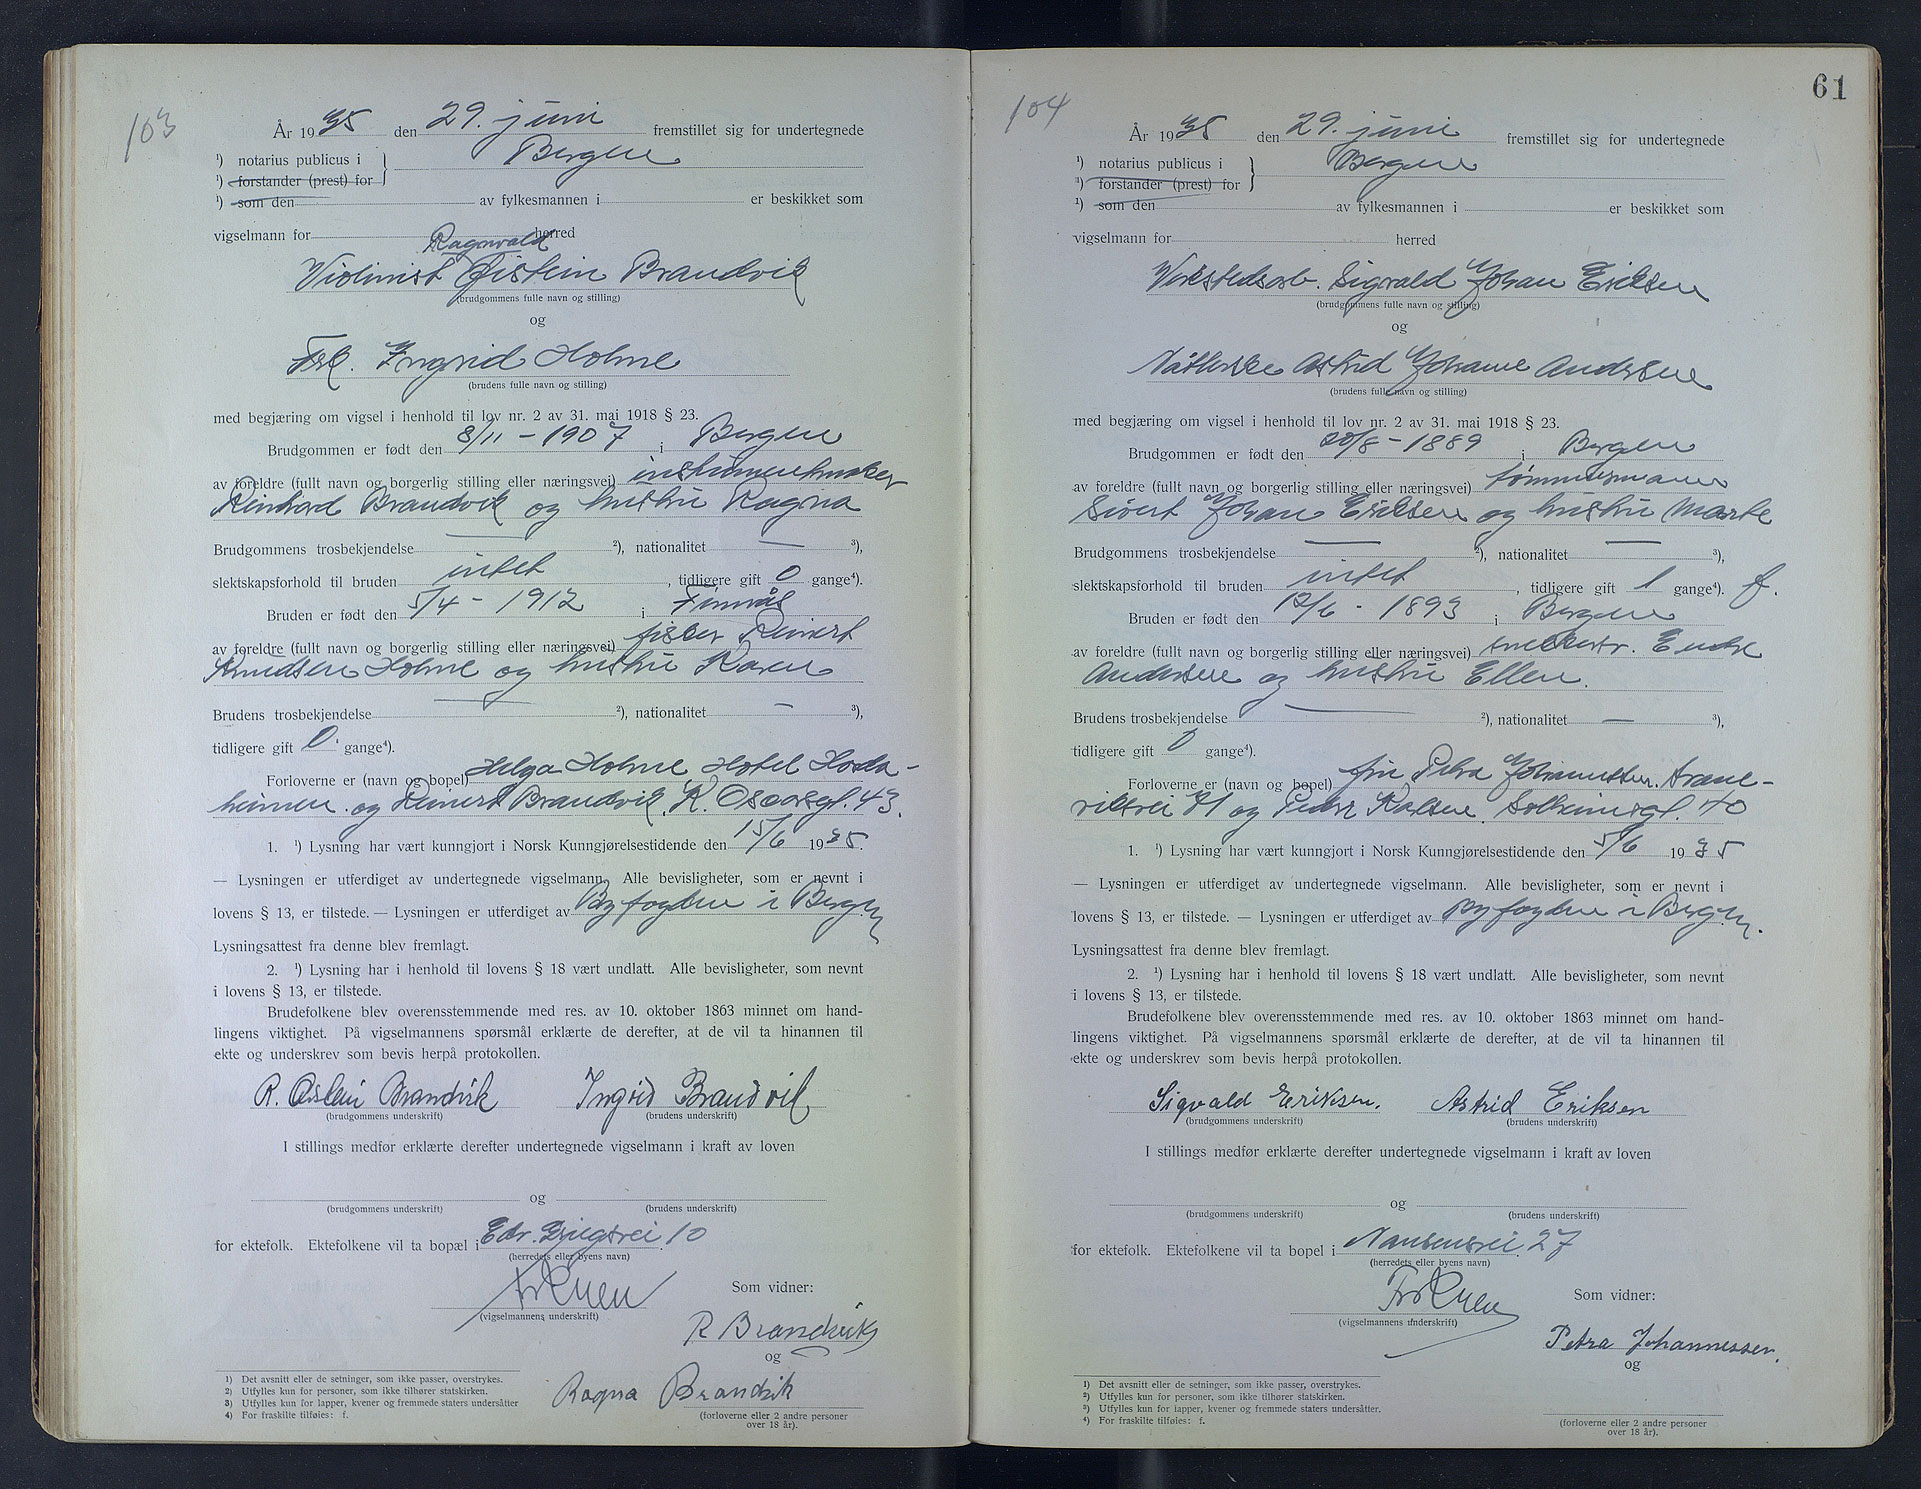 103
År 1935 den 29. juni fremstillet sig for undertegnede
¹) notarius publicus i } Bergen
¹) forstander (prest) for
¹) som den av fylkesmannen i er beskikket som
vigselmann for herred
Ragnvald
Violinist Øistein Brandvik
(brudgommens fulle navn og stilling)
og
Frk. Ingrid Holme
(brudens fulle navn og stilling)
med begjæring om vigsel i henhold til lov nr. 2 av 31. mai 1918 § 23.
Brudgommen er født den 8/11 - 1907 i Bergen
av foreldre (fullt navn og borgerlig stilling eller næringsvei) instrumentmaker
Reinhard Brandvik og hustru Ragna
Brudgommens trosbekjendelse — ²), nationalitet — ³),
slektskapsforhold til bruden intet, tidligere gift 0 gange⁴).
Bruden er født den 5/4 - 1912 i Finnås
av foreldre (fullt navn og borgerlig stilling eller næringsvei) fisker Reinert
Knudsen Holme og hustru Karen
Brudens trosbekjendelse — ²), nationalitet — ³),
tidligere gift 0. gange⁴).
Forloverne er (navn og bopel) Helga Holme, Hotel Horda-
heimen. og Reinert Brandvik, K. Oscarsgt. 43.
1. ¹) Lysning har vært kunngjort i Norsk Kunngjørelsestidende den 15/6 1935.
— Lysningen er utferdiget av undertegnede vigselmann. Alle bevisligheter, som er nevnt i
lovens § 13, er tilstede. — Lysningen er utferdiget av Byfogden i Bergen
Lysningsattest fra denne blev fremlagt.
2. ¹) Lysning har i henhold til lovens § 18 vært undlatt. Alle bevisligheter, som nevnt
i lovens § 13, er tilstede.
Brudefolkene blev overensstemmende med res. av 10. oktober 1863 minnet om hand-
lingens viktighet. På vigselmannens spørsmål erklærte de derefter, at de vil ta hinannen til
ekte og underskrev som bevis herpå protokollen.
R. Øistein Brandvik Ingrid Brandvik
(brudgommens underskrift) (brudens underskrift)
I stillings medfør erklærte derefter undertegnede vigselmann i kraft av loven
og
(brudgommens underskrift) (brudens underskrift)
for ektefolk. Ektefolkene vil ta bopæl i Edv. Griegsvei 10
(herredets eller byens navn)
Som vidner:
(vigselmannens underskrift)
R Brandvik
og
Ragna Brandvik
(forloverne eller 2 andre personer
over 18 år).
1) Det avsnitt eller de setninger, som ikke passer, overstrykes.
2) Utfylles kun for personer, som ikke tilhører statskirken.
3) Utfylles kun for lapper, kvener og fremmede staters undersåtter
4) For fraskilte tilføies: f.
61
104
År 1935 den 29. juni fremstillet sig for undertegnede
¹) notarius publicus i } Bergen
¹) forstander (prest) for
¹) som den av fylkesmannen i er beskikket som
vigselmann for herred
Verkstedsarb. Sigvald Johan Eriksen
(brudgommens fulle navn og stilling)
og
Nåtlerske Astrid Johanne Andersen
(brudens fulle navn og stilling)
med begjæring om vigsel i henhold til lov nr. 2 av 31. mai 1918 § 23.
Brudgommen er født den 20/8 - 1889 i Bergen
av foreldre (fullt navn og borgerlig stilling eller næringsvei) tømmermann
Sivert Johan Eriksen og hustru Marte
Brudgommens trosbekjendelse — ²), nationalitet — ³),
slektskapsforhold til bruden intet, tidligere gift 1 gange⁴). f.
Bruden er født den 12/6 - 1893 i Bergen
av foreldre (fullt navn og borgerlig stilling eller næringsvei) snekkerm. Endre
Andersen og hustru Ellen.
Brudens trosbekjendelse — ²), nationalitet — ³),
tidligere gift 0 gange⁴).
Forloverne er (navn og bopel) fru Petra Johannessen, Arane-
viksvei 41 og Peder Karlsen, Solheimsgt. 40
1. ¹) Lysning har vært kunngjort i Norsk Kunngjørelsestidende den 5/6 1935
— Lysningen er utferdiget av undertegnede vigselmann. Alle bevisligheter, som er nevnt i
lovens § 13, er tilstede. — Lysningen er utferdiget av Byfogden i Bergen.
Lysningsattest fra denne blev fremlagt.
2. ¹) Lysning har i henhold til lovens § 18 vært undlatt. Alle bevisligheter, som nevnt
i lovens § 13, er tilstede.
Brudefolkene blev overensstemmende med res. av 10. oktober 1863 minnet om hand-
lingens viktighet. På vigselmannens spørsmål erklærte de derefter, at de vil ta hinannen til
ekte og underskrev som bevis herpå protokollen.
Sigvald Eriksen. Astrid Eriksen
(brudgommens underskrift) (brudens underskrift)
I stillings medfør erklærte derefter undertegnede vigselmann i kraft av loven
og
(brudgommens underskrift) (brudens underskrift)
for ektefolk. Ektefolkene vil ta bopel i Nansensvei 27
(herredets eller byens navn)
Som vidner:
(vigselmannens underskrift)
Petra Johannessen.
og
(forloverne eller 2 andre personer
over 18 år).
1) Det avsnitt eller de setninger, som ikke passer, overstrykes.
2) Utfylles kun for personer, som ikke tilhører statskirken.
3) Utfylles kun for lapper, kvener og fremmede staters undersåtter.
4) For fraskilte tilføies: f.